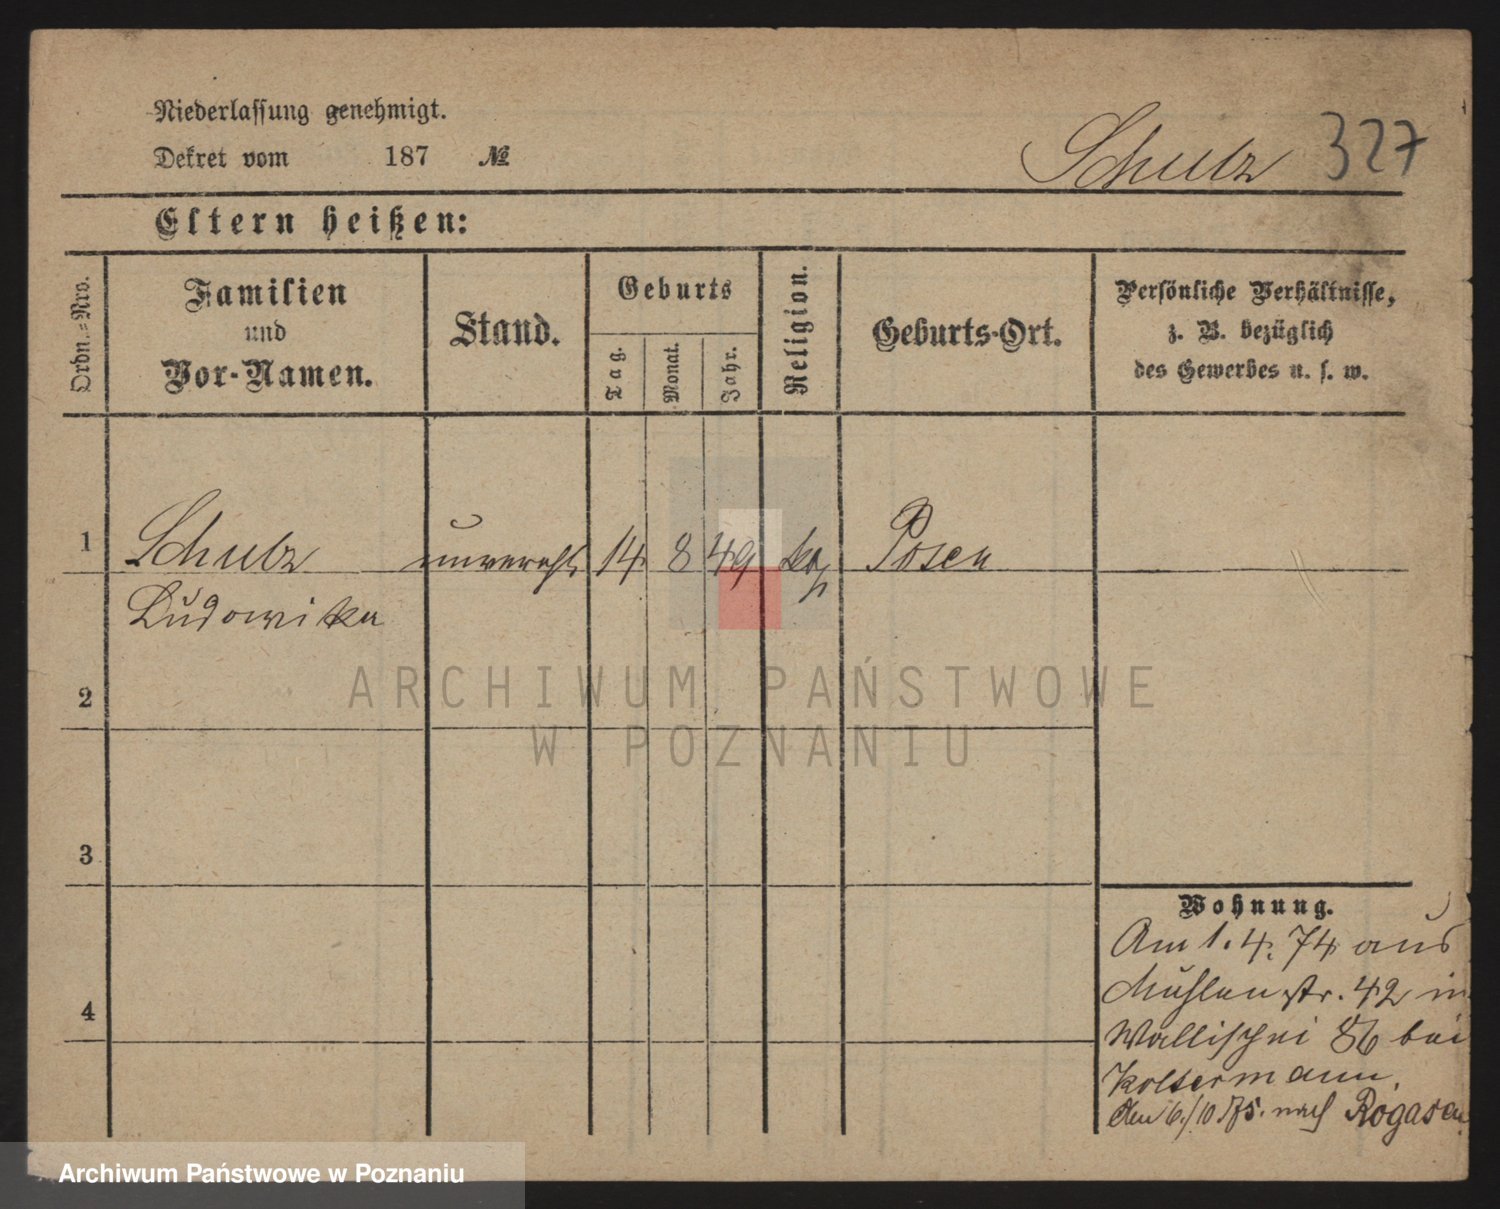 Niederlassung genehmigt.
Dekret vom 187 №
Schulz 327
Eltern heißen:
Ordn.=Nro.
Familien
und
Vor-Namen.
Stand.
Geburts
Tag.
Monat.
Jahr.
Religion.
Geburts-Ort.
Persönliche Verhältnisse,
z. B. bezüglich
des Gewerbes u. s. w.
1 Schulz unvereh. 14 8 49 kat Posen
Ludowika
2
3
4
Wohnung.
Am 1. 4. 74 aus
Mühlenstr. 42 in
Wallischei 86 bei
Koltermann.
Den 6/10.75. nach Rogasen
ARCHIWUM PAŃSTWOWE
W POZNANIU
Archiwum Państwowe w Poznaniu